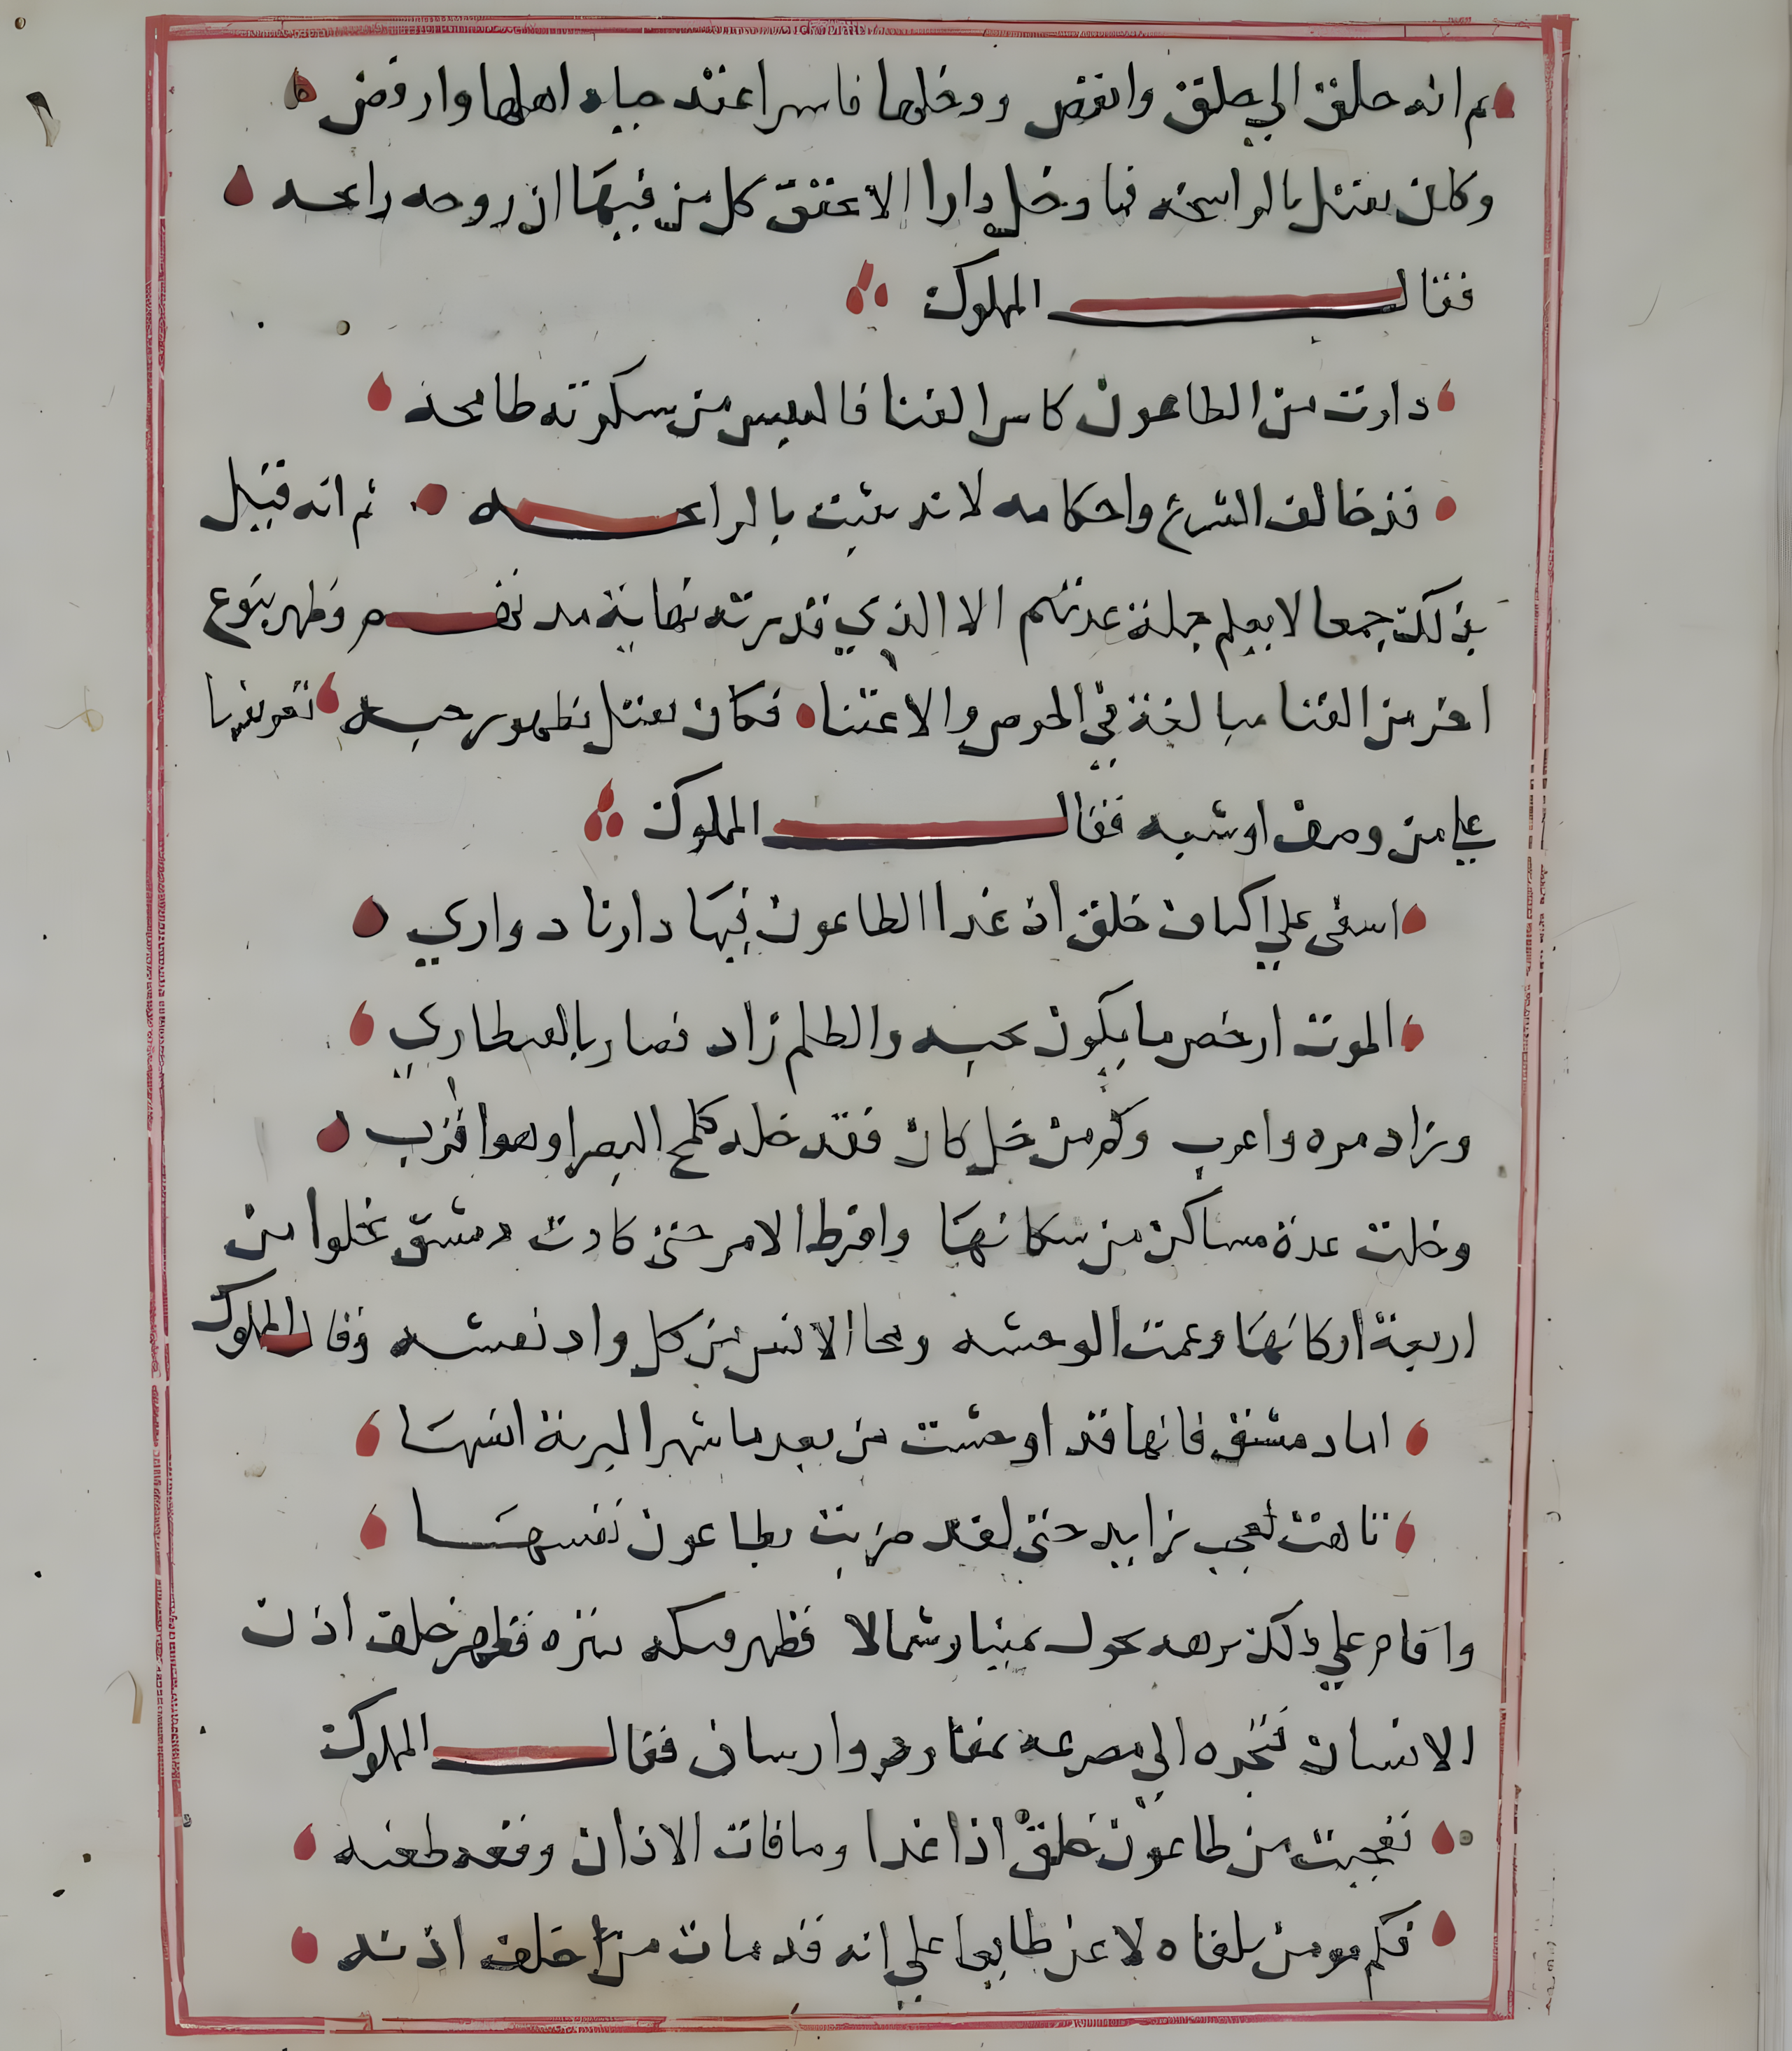 ثم انه حلق الي جلق وانقض ودخلها فاسرا عند جباه اهلها وارفض
وكان يقتل بالرايحه فما دخل دارا الا عتق كل من فيها ان روحه رايحه
فقال المملوك
دارت من الطاعون كاس الفنا فالنفس من سكرته طافحه
قد خالف الشرع واحكامه لانه يثبت بالرايحه ثم انه قتل
بذلك جمعا لا يعلم جملة عدتهم الا الذي قدرته نهاية مددهم وظهر بنوع
اخر من الفنا مبالغة في الحرص والاعتنا فكان يقتل بظهور حبه تعويضا
علي من وصف اوشبه فقال المملوك
اسفي علي اكناف جلق اذ غدا الطاعون فيها دارنا دواري
الموت ارخص ما يكون بحبه والظلم زاد فصار بالقنطاري
وزاد مره واعرب وكم من خل كان فقد خله كلمح البصر او هو اقرب
وخلت عدة مساكن من سكانها وافرط الامر حتي كادت دمشق تخلوا من
اربعة اركانها وعمت الوحشه ومحا الانس من كل واد نعشه وقال المملوك
اما دمشق فانها قد اوحشت من بعد ما شهر البرية انسها
تاهت بعجب زايد حتي لقد ضربت بطاعون نفسها
واقام علي ذلك برهه يحول يمينا وشمالا فظهر خلف اذن
الانسان فتجره الي مصرعه فقال المملوك
تعجبت من طاعون جلق اذا غدا وما فاتت الاذان وقعه طعنه
فكم مومن تلقاه لاعن طايعا علي انه قد مات من خلف اذنه